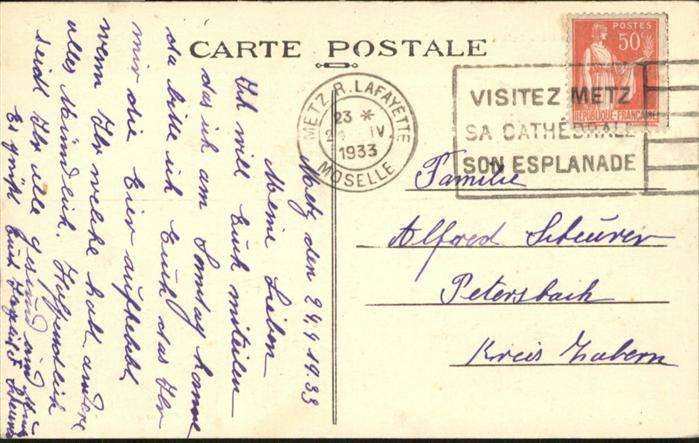 CARTE POSTALE
METZ R. LAFAYETTE
23 *
IV
1933
MOSELLE
VISITEZ METZ
SA CATHÉDRALE
SON ESPLANADE
POSTES
50c
REPUBLIQUE FRANÇAISE
Metz den 24.4 1933
Meine Lieben
Ich will Euch mitteilen
das ich am Sonntag komme
da bitte ich Euch das Ihr
mir die Eier aufhebt,
wenn Ihr welche habt andere
alles Mündlich. Hoffendlich
seid Ihr alle gesund
Es grüßt Euch
Familie
Alfred Scheurer
Petersbach
Kreis Zabern